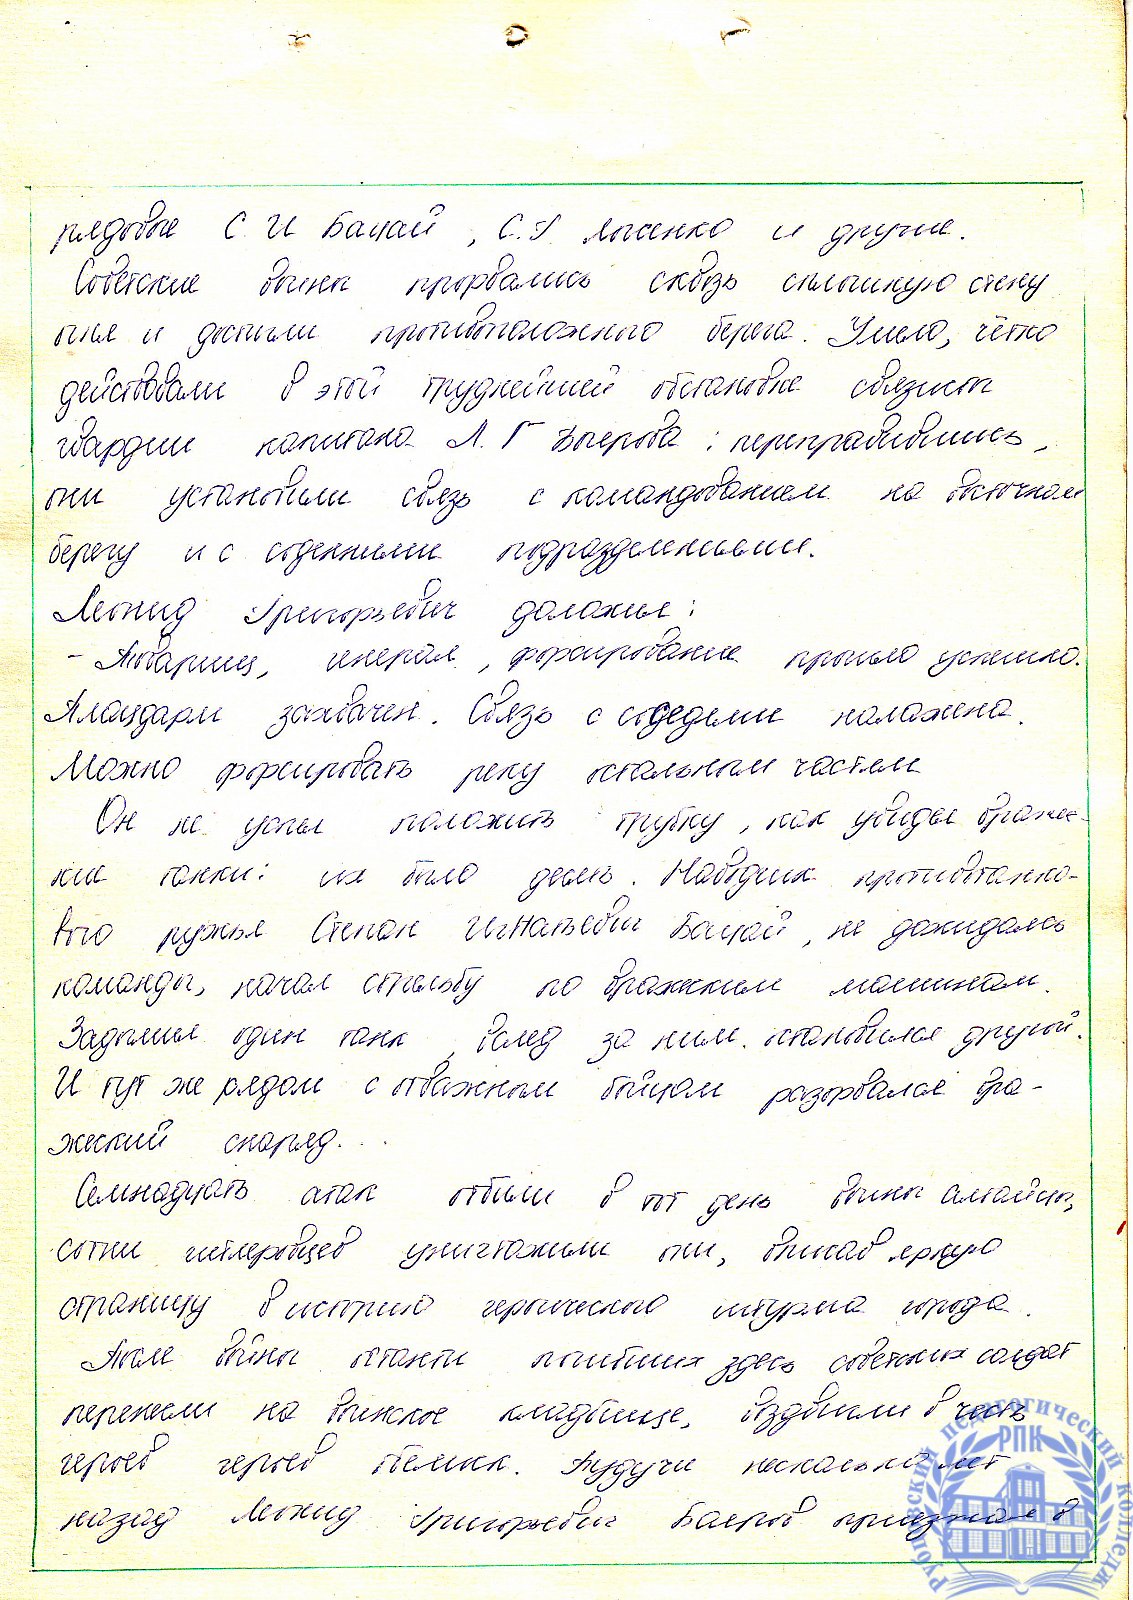 рядовые С. И Бацай, С. Г. Лысенко и другие.
Советские воины прорвались сквозь сплошную стену
огня и достигли противоположного берега. Умело, чётко
действовали в этой труднейшей обстановке связисты
гвардии капитана Л. Г : переправившись,
они установили связь с командованием на восточном
берегу и с соседними подразделениями.
Леонид Григорьевич доложил:
- Товарищ, генерал, форсирование прошло успешно.
Плацдарм захвачен. Связь с соседями налажена.
Можно форсировать реку остальным частям
Он не успел положить трубку, как увидел вражес-
кие танки: их было десять. Наводчик противотанко-
вого ружья Степан Игнатьевич Бацай, не дожидаясь
команды, начал стрельбу по вражеским машинам.
Задымил один танк, вслед за ним остановился другой.
И тут же рядом с отважным бойцом разорвался вра-
жеский снаряд...
Семнадцать атак отбили в тот день воины алтайцы,
сотни гитлеровцев уничтожили они, вписав яркую
страницу в историю героического штурма города.
После войны останки погибших здесь советских солдат
перенесли на воинское кладбище, воздвигли в честь
героев героев обелиск. Будучи несколько лет
назад Леонид Григорьевич приезжал в
Рубцовский педагогический колледж
РПК